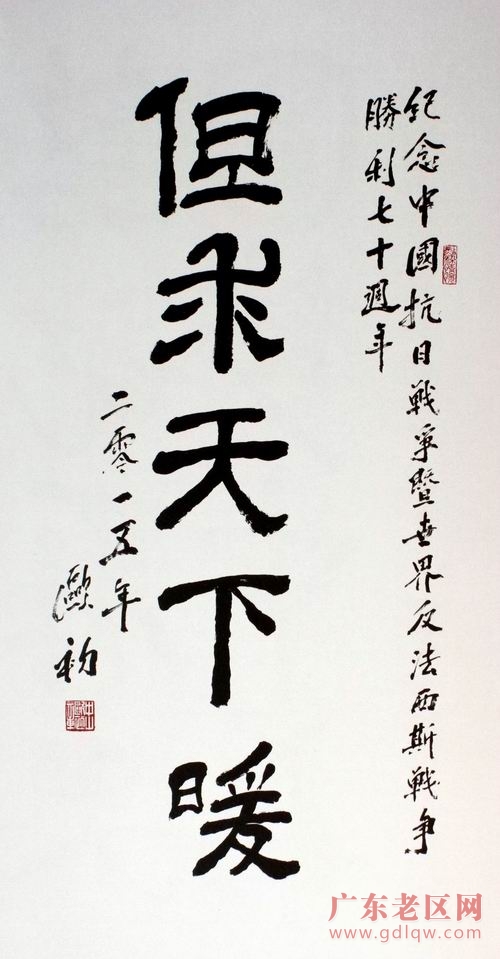 紀念中國抗日戰爭暨世界反法西斯戰争
勝利七十週年
但求天下暖
二零一五年
歐初
广东老区网
www.gdlqw.com